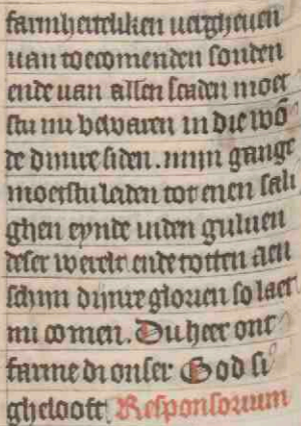 farmherteliken vergheven
van toecomenden sonden
ende van allen scaden moet
stu mi bewaren in die wō
de dinre siden. mijn gange
moetstu leiden tot enen sali
ghen eynde in den guluen
deser werelt ende totten aen
schijn dijnre glorien so laet
mi comen. Du heer ont
farme di onser God si
ghelooft Responsorium